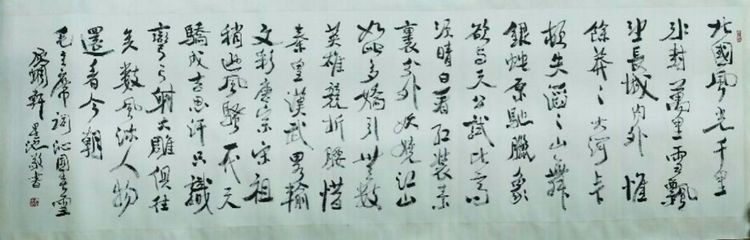 北國風光千里
冰封萬里雪飄
望長城内外惟
餘莽々大河上下
頓失滔々山舞
銀蛇原馳臘象
欲与天公試比高
須晴日看紅裝素
裹分外妖嬈江山
如此多嬌引無數
英雄競折腰惜
秦皇漢武略輸
文彩唐宗宋祖
稍遜風騷一代天
驕成吉思汗只識
彎弓射大雕俱往
矣數風流人物
還看今朝
毛主席詞沁園春雪
軒 書